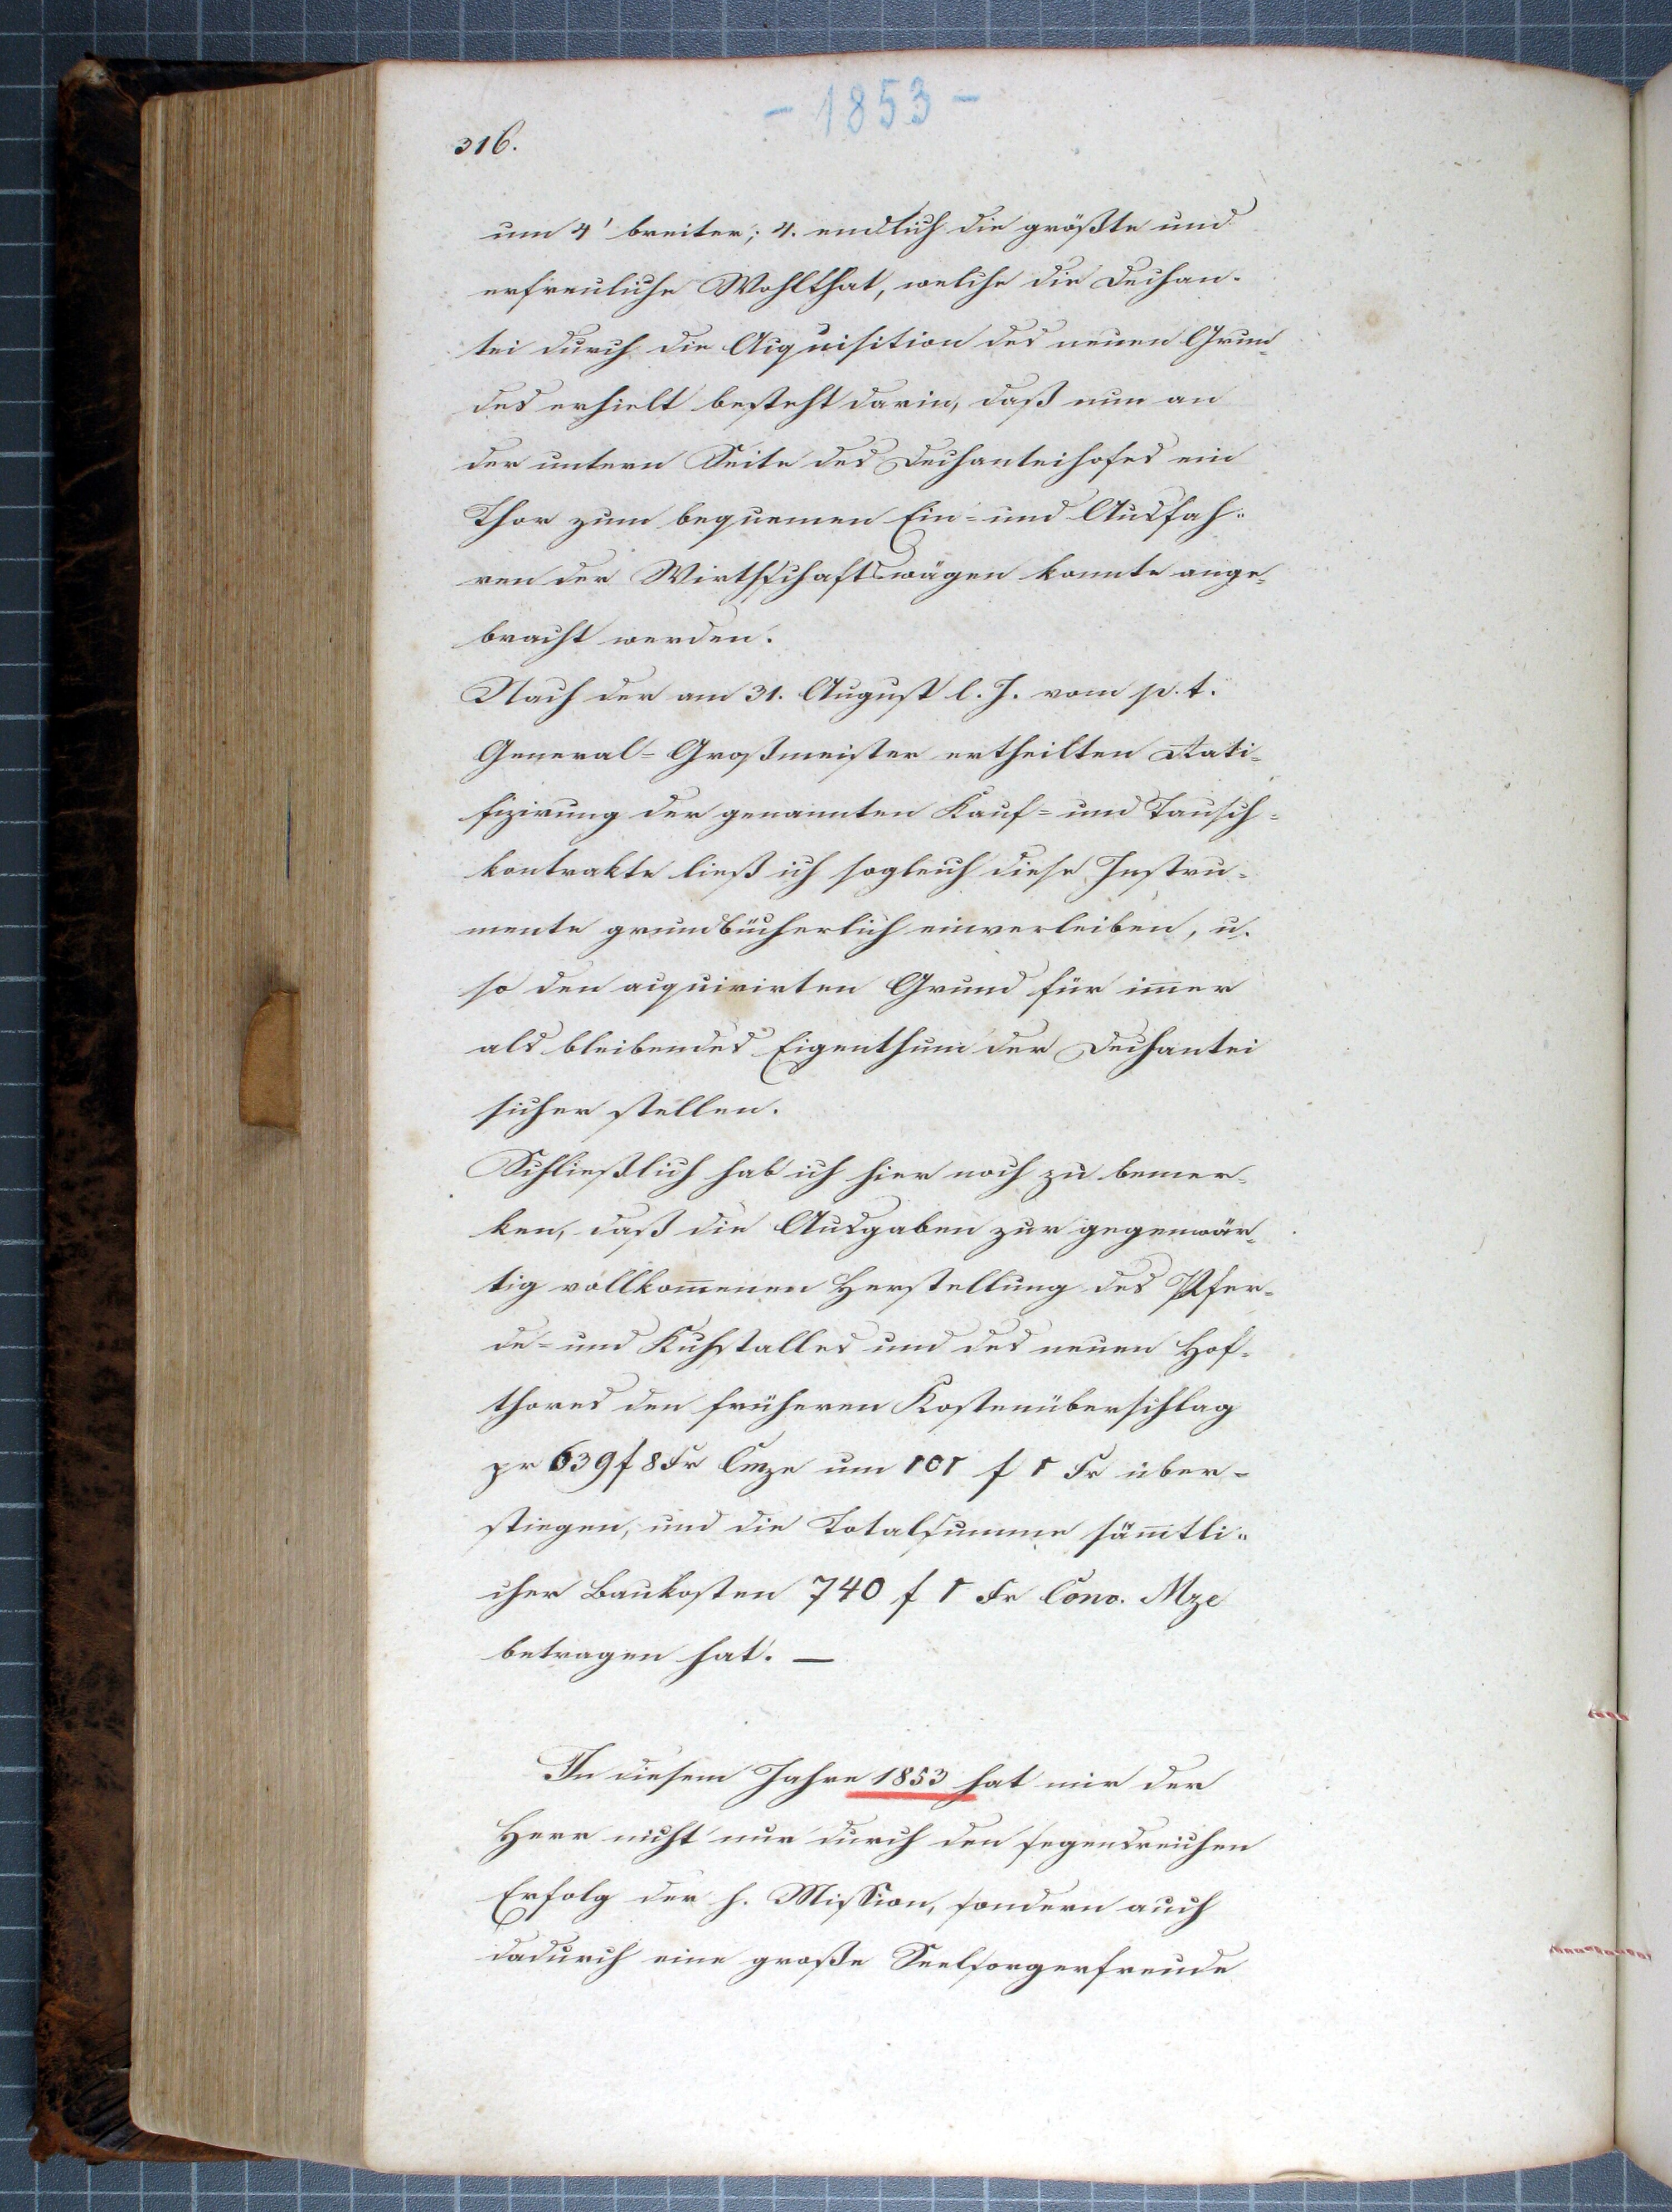 - 1853 -
316.
um 4' breiter; 4. endlich die größte und
erfreuliche Wohlthat, welche die Dechan-
tei durch die Acquisition des neuen Grun-
des erhielt besteht darin, daß nun an
der untern Seite des Dechanteihofes ein
Thor zum bequemen Ein- und Ausfah-
ren der Wirthschaftswägen konnte ange-
bracht werden.
Nach der am 31. August l. J. vom p. t.
General-Großmeister ertheilten Rati-
fizirung der genannten Kauf- und Tausch-
kontrakte ließ ich sogleich diese Instru-
mente grundbücherlich einverleiben, u.
so den acquirirten Grund für im̄er
als bleibendes Eigenthum der Dechantei
sicher stellen.
Schließlich hab ich hier noch zu bemer-
ken, daß die Ausgaben zur gegenwär-
tig vollkom̄enen Herstellung des Pfer-
de- und Kuhstalles und des neuen Hof-
thores den früheren Kostenüberschlag
pr 639 f 8 Kr Cmze um 101 f 1 Kr über-
stiegen, und die Totalsumme säm̄tli-
cher Baukosten 740 f 1 Kr Conv. Mze
betragen hat. —
In diesem Jahre 1853 hat mir der
Herr nicht nur durch den segensreichen
Erfolg der h. Mission, sondern auch
dadurch eine große Seelsorgerfreude